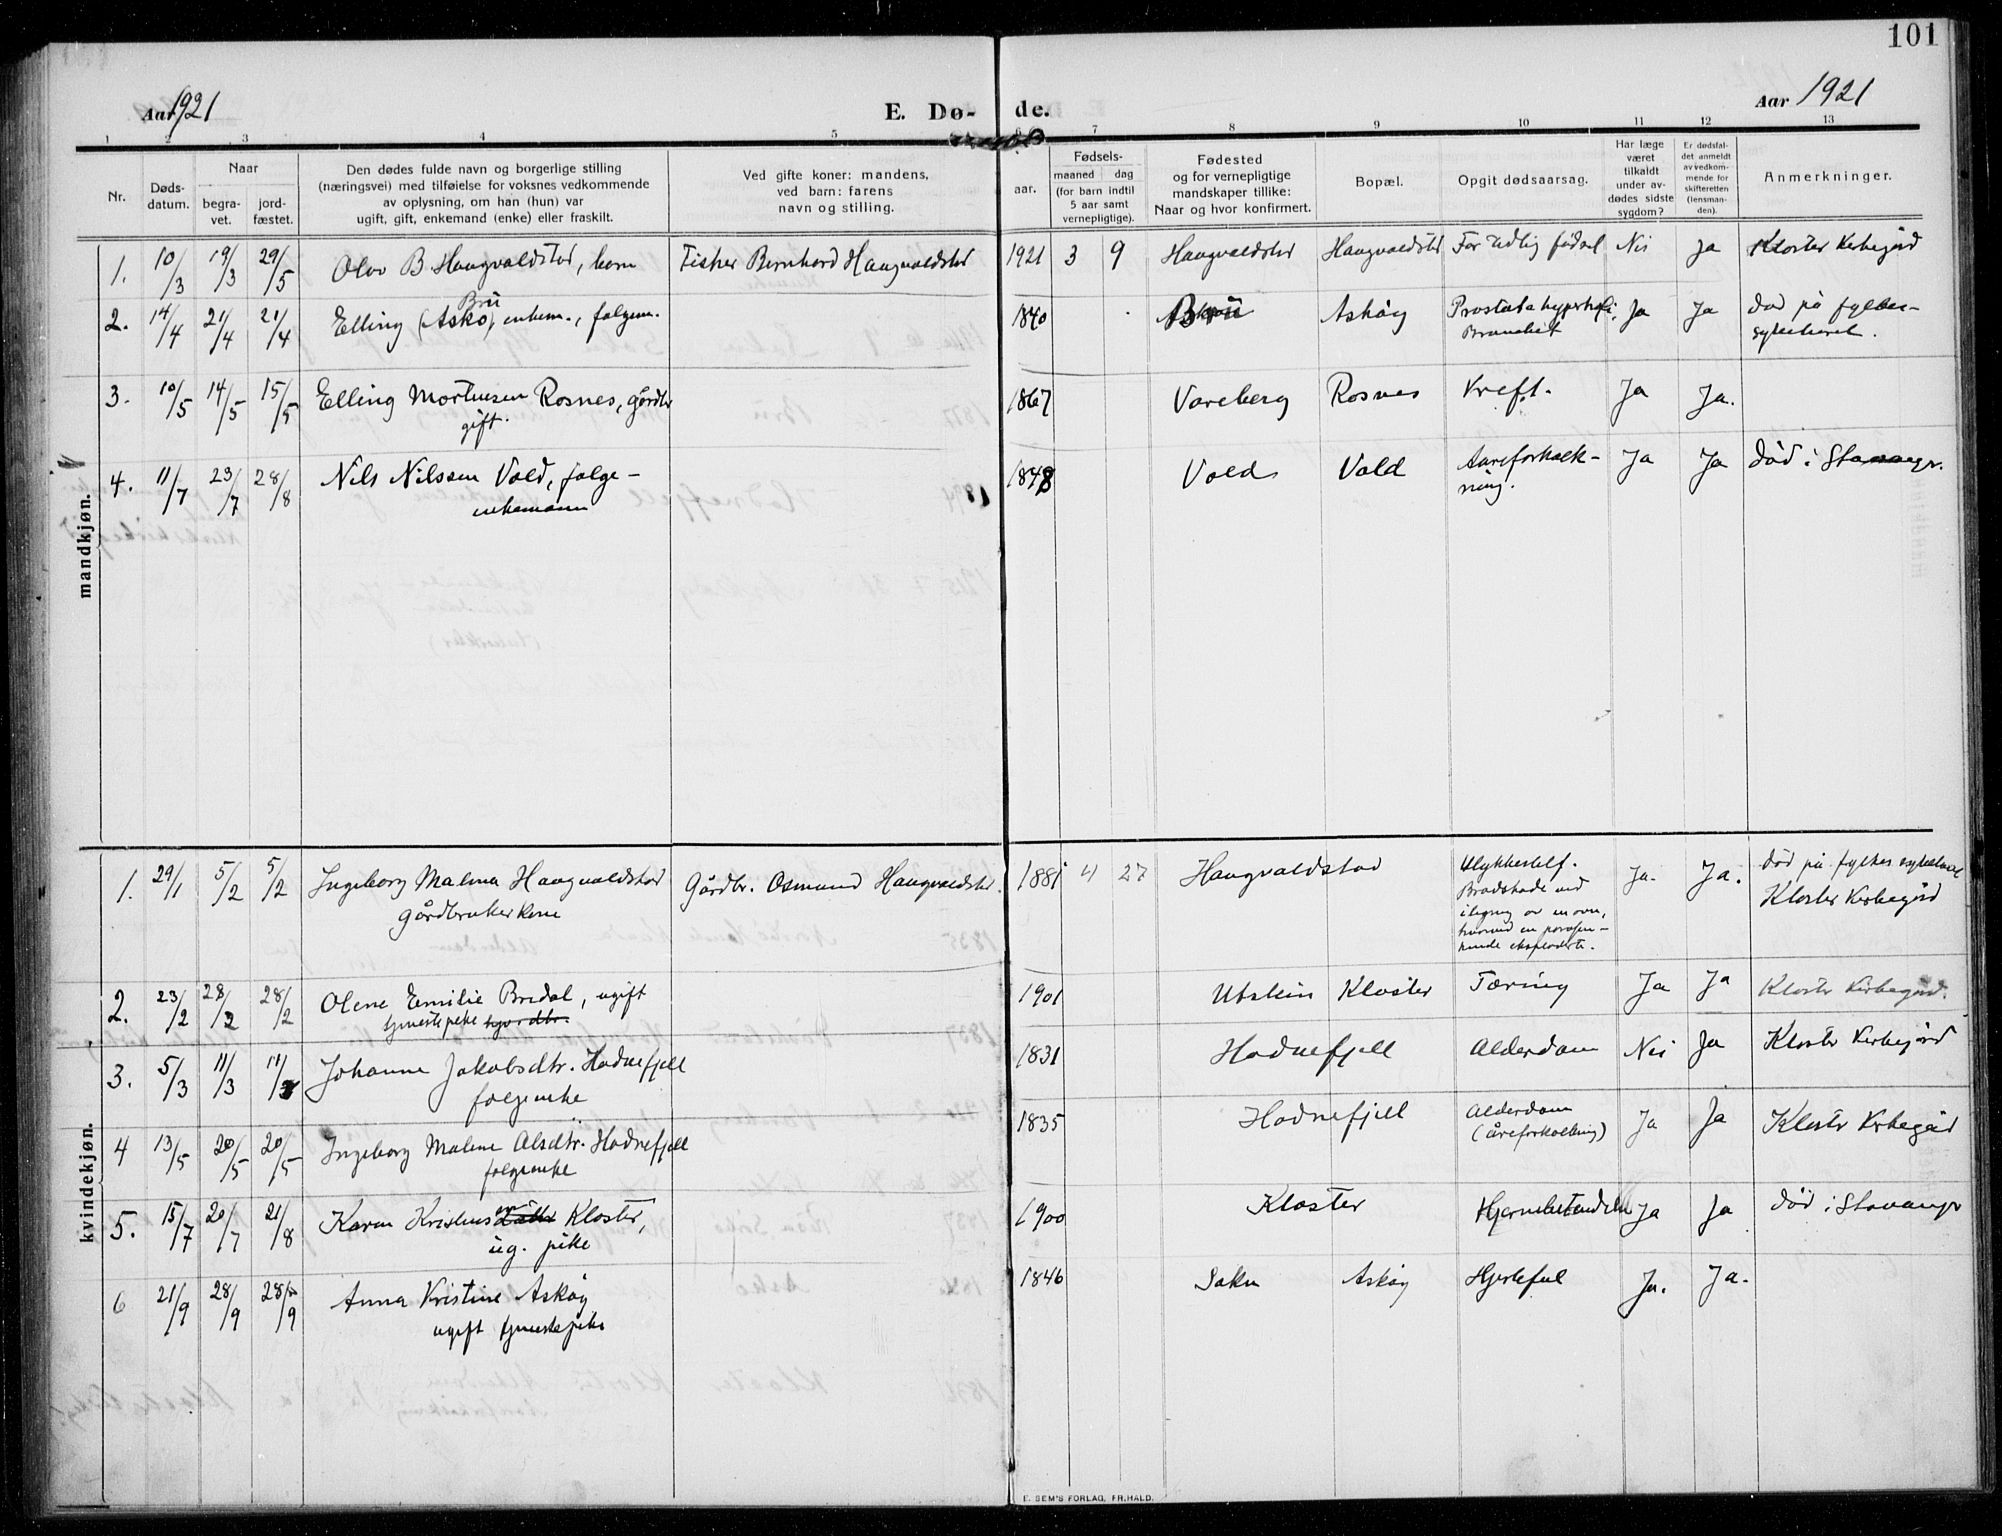 101
Aar 1921
E. Dø-
de.
Aar 1921
1 2 3 4 5 6 7 8 9 10 11 12 13
Nr.
Døds-
datum.
Naar
begra-
vet.
jord-
fæstet.
Den dødes fulde navn og borgerlige stilling
(næringsvei) med tilføielse for voksnes vedkommende
av oplysning, om han (hun) var
ugift, gift, enkemand (enke) eller fraskilt.
Ved gifte koner: mandens,
ved barn: farens
navn og stilling.
aar.
Fødsels-
maaned dag
(for barn indtil
5 aar samt
vernepligtige).
Fødested
og for vernepligtige
mandskaper tillike:
Naar og hvor konfirmert.
Bopæl.
Opgit dødsaarsag.
Har læge
været
tilkaldt
under av-
dødes sidste
sygdom?
Er dødsfal-
det anmeldt
av vedkom-
mende for
skifteretten
(lensman-
den).
Anmerkninger.
mandkjøn.
1. 10/3 19/3 29/5 Olov B Haugvaldstad, barn Fisker Bernhard Haugvaldstad 1921 3 9 Haugvaldstad Haugvaldstad For tidlig fødsel Nei Ja Kloster Kirkegård
Bru
2. 14/4 21/4 21/4 Elling (Askø), enkem., folgem. 1840 Bru Askøy Prostatahypertrofi, Ja Ja død på fylkes-
Bronchit sykehuset.
3. 10/5 14/5 15/5 Elling Mortensen Rosnes, gårdbr 1867 Voreberg Rosnes Kreft. Ja Ja.
gift.
4. 11/7 23/7 28/8 Nils Nilssen Vold, folge- 1848 Vold Vold Aareforkalk- Ja Ja død i Stavanger.
enkemann ning.
kvindekjøn.
1. 29/1 5/2 5/2 Ingeborg Malena Haugvaldstad Gårdbr. Osmund Haugvaldstad. 1881 4 27 Haugvaldstad Ulykkestilf. Ja. Ja. død på fylkes sykehuset
gårdbrukerkone Brandskade ved Kloster Kirkegård
ilegning av en ovn,
hvorved en parafin-
kande eksploderte.
2. 23/2 28/2 28/2 Olene Emilie Bredal, ugift 1901 Utstein Kloster Tæring Ja Ja Kloster Kirkegård.
tjenestepike
3. 5/3 11/3 11/3 Johanne Jakobsdtr. Hodnefjell 1831 Hodnefjell Alderdom Nei Ja Kloster Kirkegård
folgeenke
4 13/5 20/5 20/5 Ingeborg Malene Olsdtr. Hodnefjell 1835 Hodnefjell Alderdom Ja Ja Kloster Kirkegård
folgeenke (åreforkalkning)
5. 15/7 20/7 21/8 Karen Kristens Kloster, 1900 Kloster Hjernebetendelse Ja Ja død i Stavanger
ug. pike
6 21/9 28/9 28/9 Anna Kristine Askøy 1846 Sokn Askøy Hjertefeil Ja. Ja.
ugift tjenestepike
E. SEM'S FORLAG, FR.HALD.